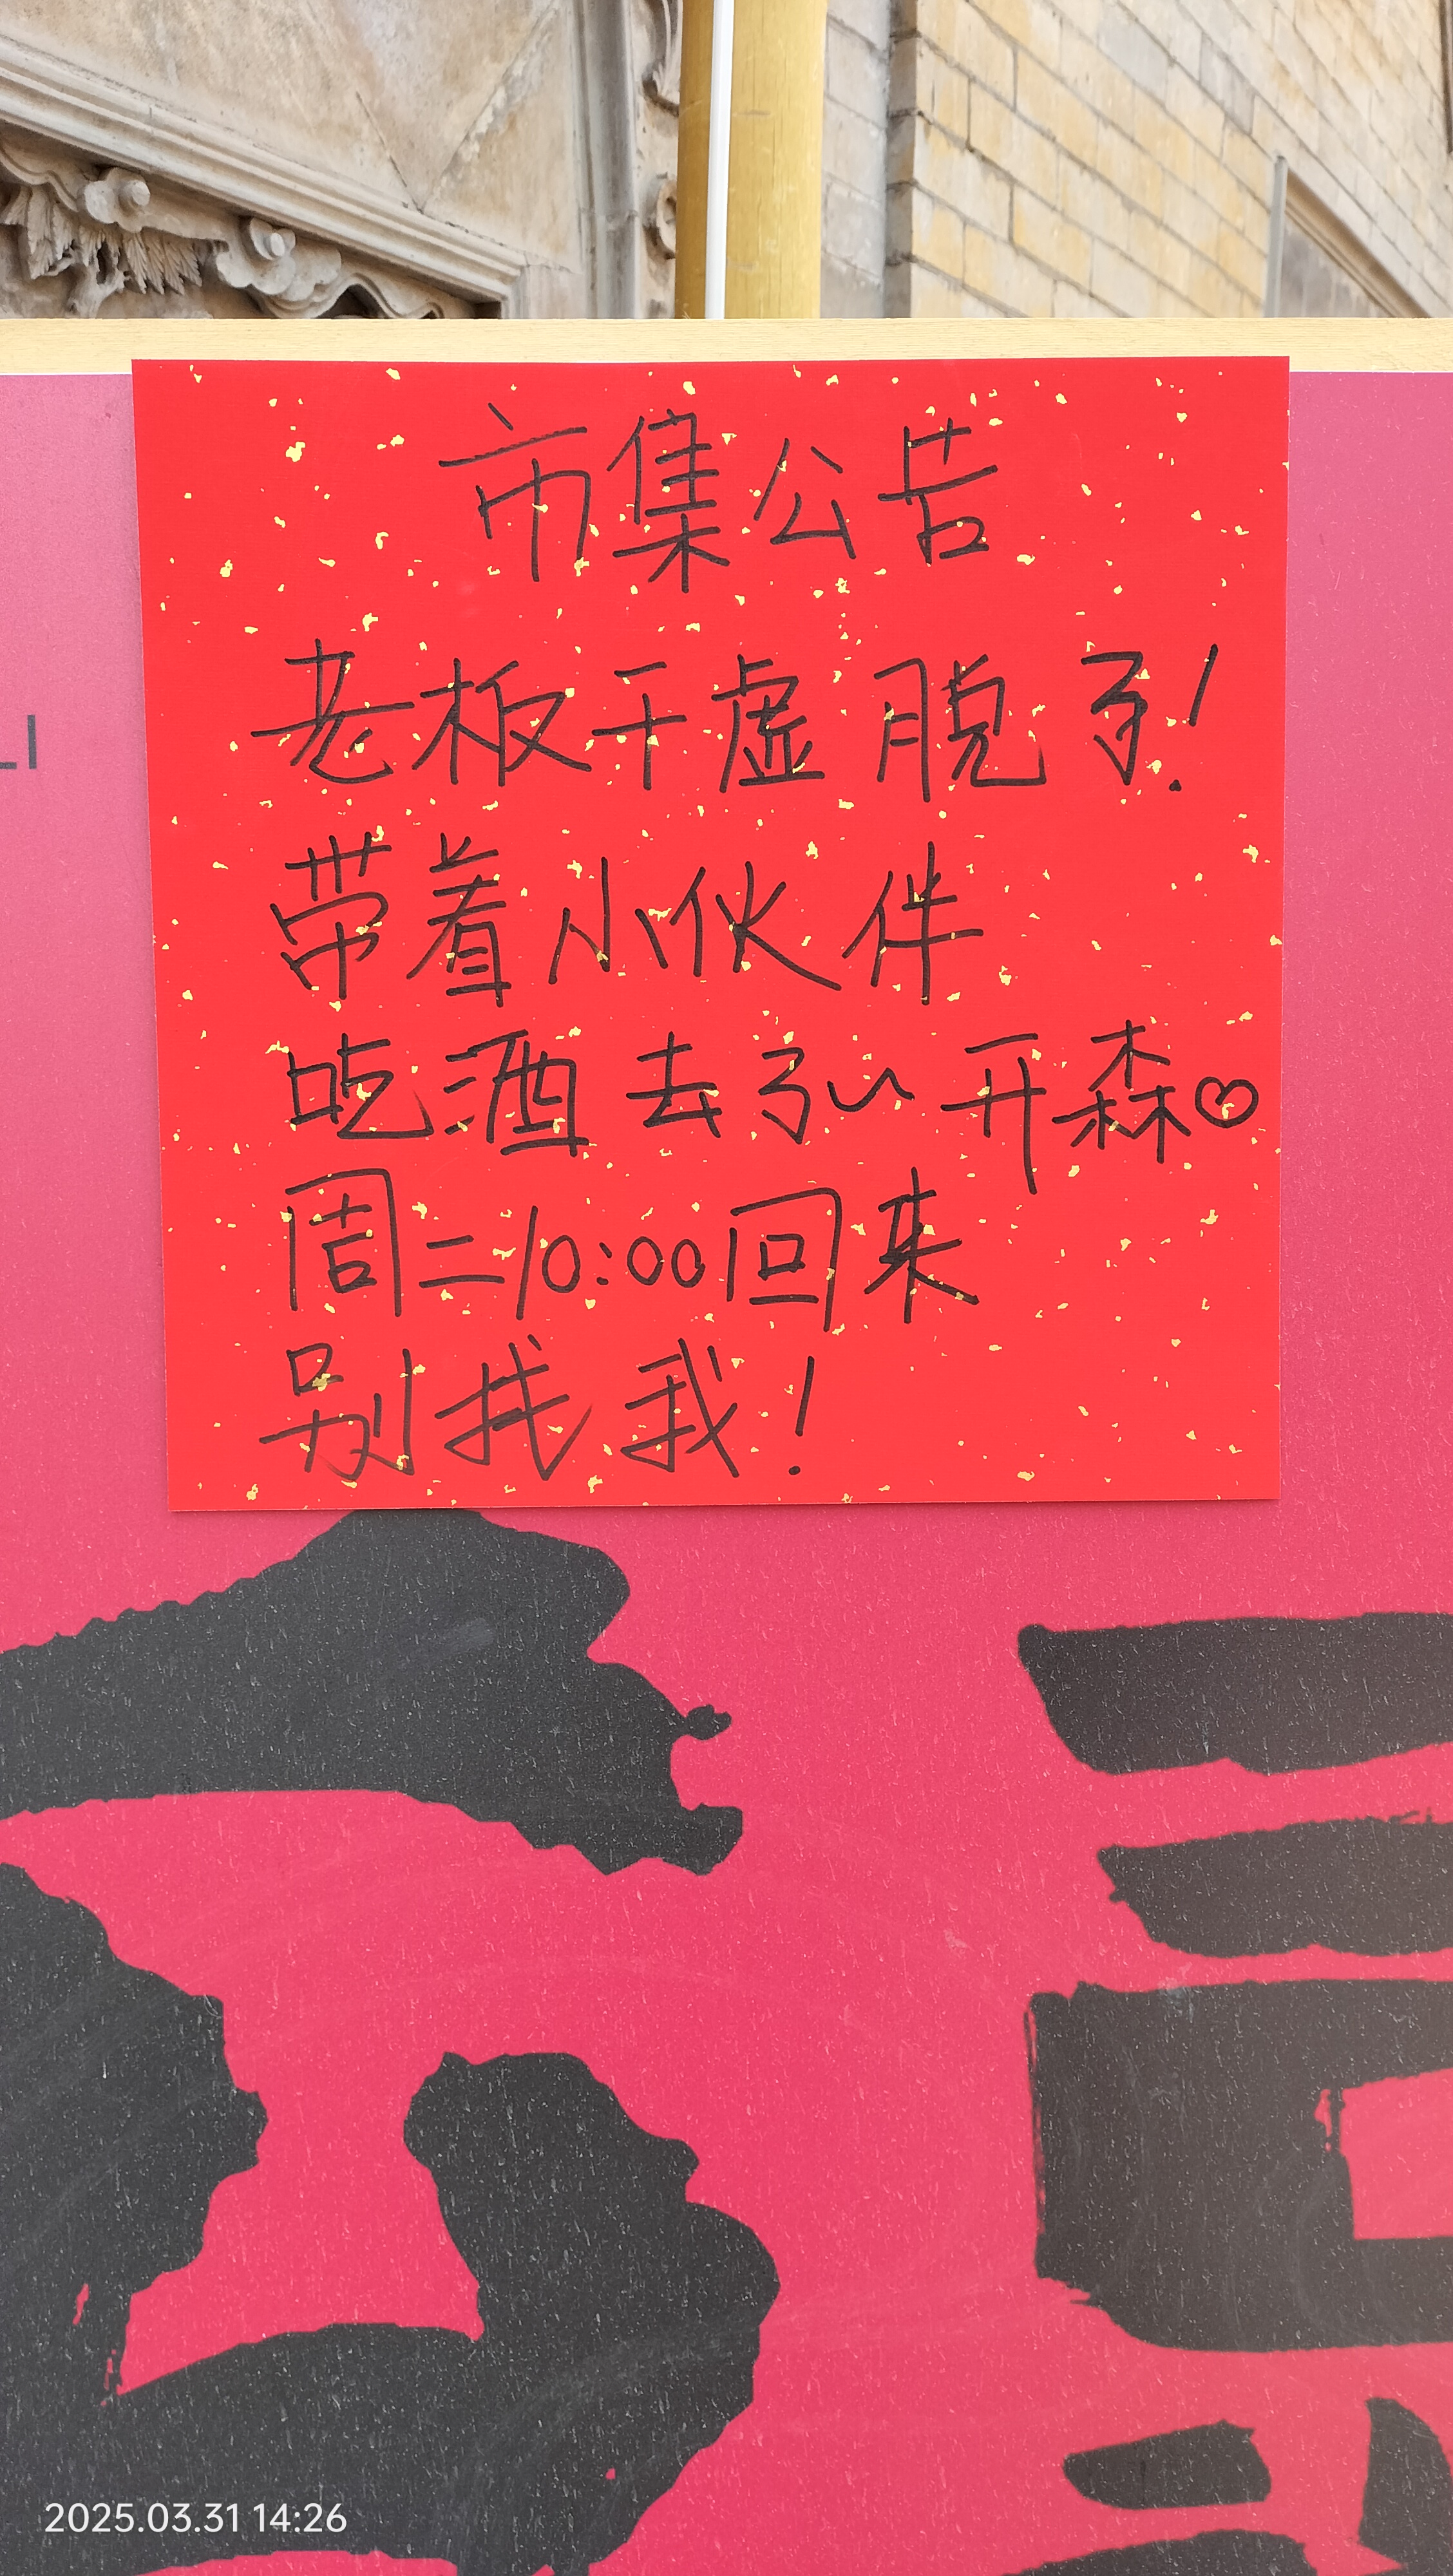 市集公告
老板干虚脱了!
带着小伙伴
吃酒去了~ 开森♡
周二10:00回来
别找我!
LI
2025.03.31 14:26